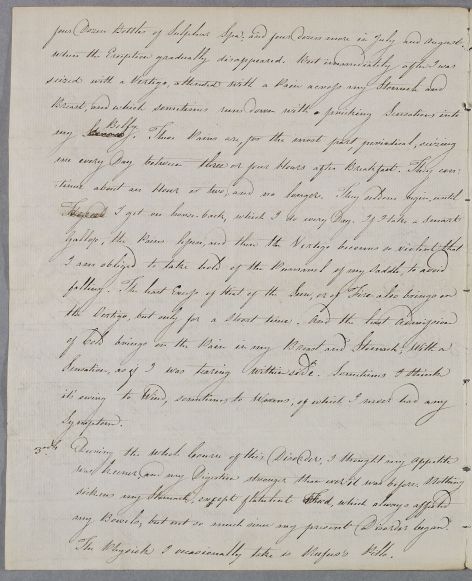 four Dozen Bottles of Sulphur Spa, and four dozen more in July and August
when the Eruption gradually disappeared. But immediately after I was
seized with a Vertigo, attended with a Pain across my Stomach and
Breast, and which sometimes runs down with a punching Sensation into
my Belly. These Pains are, for the most part periodical, seizing
me every Day between three or four Hours after Breakfast. They con-
tinue about an Hour or two, and no longer. They seldom begin, until
I get on horse-back, which I do every Day. If I take a smart
Gallop, the Pains lessen, and then the Vertigo becomes so violent that
I am obliged to take hold of the Pummel of my Saddle, to avoid
falling. The least Excess of Heat of the Sun, or of Fire also brings on
the Vertigo, but only for a short time. And the least admission
of Cold brings on the Pain in my Breast and Stomach, with a
Sensation, as if I was tearing within side. Sometimes I think
it's owing to Wind, sometimes to Worms, of which I never had any
Symptom.
3rdly During the whole Course of this Disorder, I thought my appetite
was keener and my Digestion stronger than ever it was before. Nothing
sickens my Stomach, except flatulent Food, which always affected
my Bowels, but not so much since my present Disorder began
The Physick I occasionally take is Rufus's Pills.